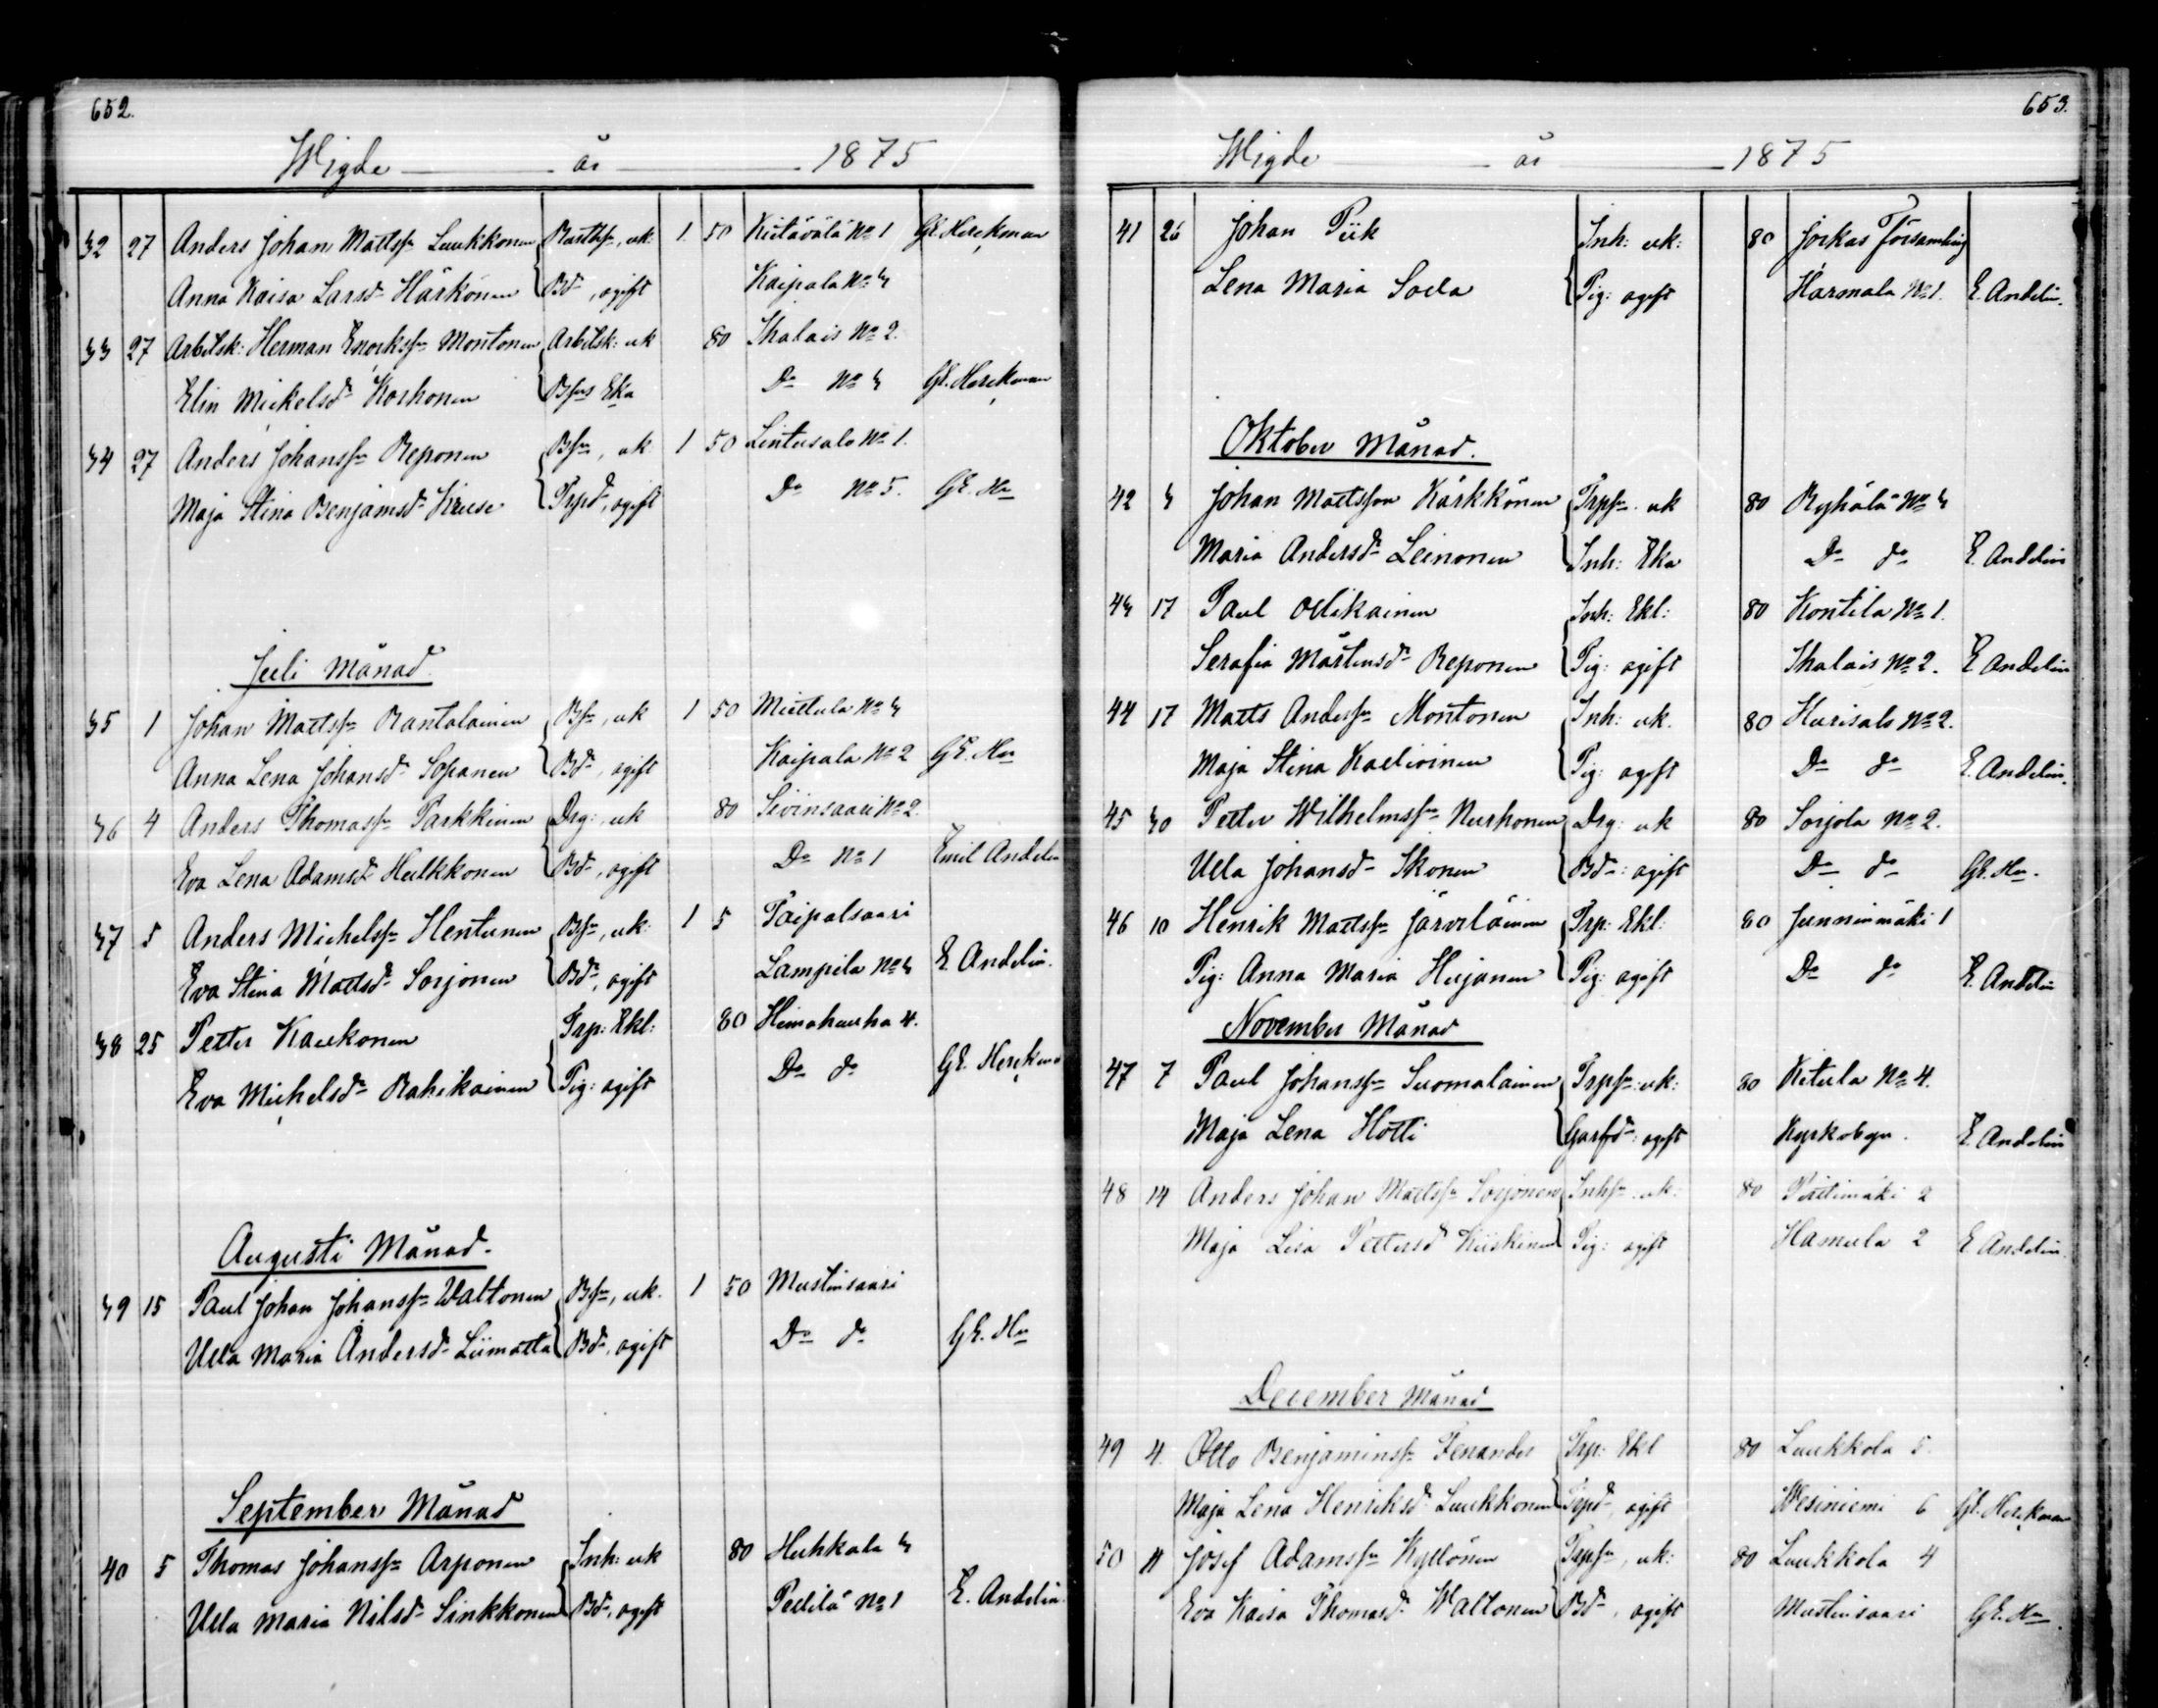 652.
Wigde år 1875
32 27 Anders Johan Mattss. Luukkonen uk: 1. 50 Kietävälä No 1 GE. Herckman
Anna Kaisa Larsdr Härkönen Bdr, ogift Kaipala No 3
33 27 Arbetsk: Herman Enockssn Montonen Arbetsk: uk 80 Ihalais No 2.
Elin Mickelsdr Korhonen Bsns Eka Do No 3 GE. Herckman
34 27 Anders Johanssn Reponen Bsn, uk 1 50 Lintusalo No 1.
Maja Stina Benjamsdr Kruse Trpdr, ogift Do No 5. GE. Hn
Juli Månad.
35 1 Johan Mattssn Rantalainen Bsn, uk 1 50 Miettula No 3
Anna Lena Johansdr Sopanen Bdr, ogift Kaipala No 2 GE. Hn
36 4 Anders Thomassn Parkkinen Drg:, uk 80 Sivinsaari No 2.
Eva Lena Adamsdr Hulkkonen Bdr, ogift Do No 1 Emil Andelin
37 5 Anders Michelssn Hentunen Bsn, uk: 1 5 Taipalsaari
Eva Stina Mattsdr Sorjonen Bdr, ogift Lampila No 3 E. Andelin.
38 25 Petter Kaukonen Trp: Ekl: 80 Himahauha 4.
Eva Michelsdr Rahikainen Pig: ogift Do do GE. Herckman
Augusti Månad.
39 15 Paul Johan Johanssn Waltonen Bsn, uk. 1 50 Mustinsaari
Ulla Maria Andersdr Liimatta Bdr, ogift Do do GE. Hn
September Månad
40 5 Thomas Johanssn Arponen Inh: uk 80 Huhkala 3
Ulla Maria Nilsdr Sinkkonen Bdr, ogift No 1 E. Andelin.
653.
Wigde år 1875
41 26 Johan Piik Inh: uk: 80 Jorkas Församling
Lena Maria Soela Pig: ogift Harmala No 1. E. Andelin.
Oktober Månad.
42 3 Johan Mattsson Kärkkönen Trpsn uk 80 Ryhälä No 3
Maria Andersdr Leinonen Inh: Eka Do do E. Andelin
43 17 Paul Ollikainen Inh: Ekl: 80 Kontila No 1.
Serafia Mårtensdr Reponen Pig: ogift Ihalais No 2. E Andelin
44 17 Matts Anderssn Montonen Inh: uk. 80 Hurisalo No 2.
Maja Stina Kaelivinen Pig: ogift Do do E. Andelin.
45 30 Petter Wilhelmssn Nurhonen Drg: uk 80 Sorjola No 2.
Ulla Johansdr Ikonen Bdr: ogift Do do GE. Hn.
46 10 Henrik Mattssn Järviläinen Trp: Ekl: 80 Junninmäki 1
Pig: Anna Maria Hujanen Pig: ogift Do do E. Andelin
November Månad
47 7 Paul Johanssn Suomalainen Trpsn: uk: 80 Kitula No 4.
Maja Lena Hotti ogift Kyrkobyn. E. Andelin
48 14 Anders Johan Mattssn Sorjonen Inhsn: uk: 80 2
Maja Lisa Pettersd Kiiskinen Pig: ogift Hamula 2 E Andelin.
December Månad
49 4. Otto Benjaminssn Fenander Trp: Ekl 80 Luukkola 5.
Maja Lena Henriksdr Luukkonen Trpdr, ogift Wesiniemi 6 GE. Herckman
50 11 Josef Adamssn Kyllönen Trpsn, uk: 80 Luukkola 4
Eva Kaisa Thomasdr Waltonen Bdr, ogift Mustinsaari GE. Hn.